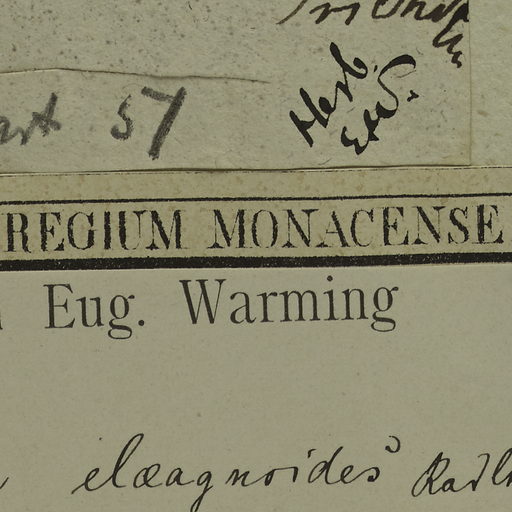 57
Herb.
E.W.
REGIUM MONACENSE
Eug. Warming
elæagnoides Radlk